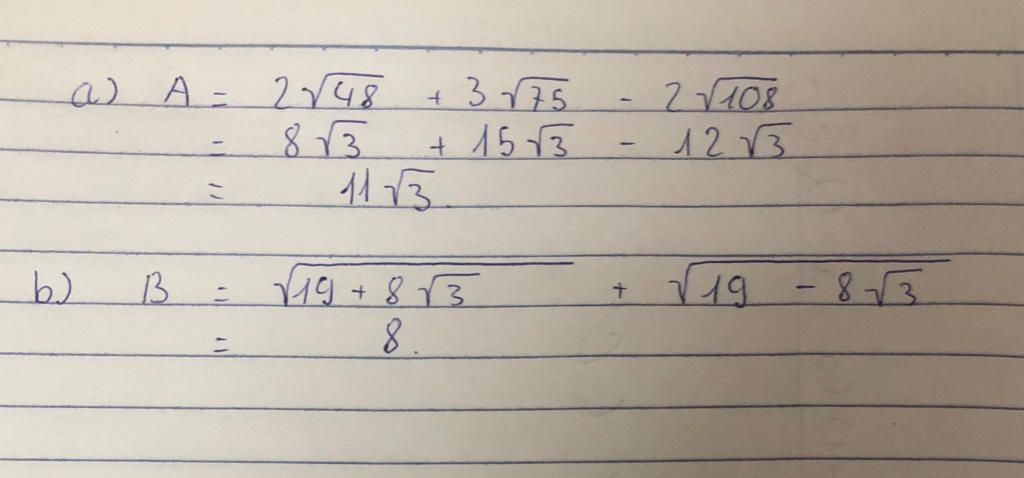 a) A = 2√48 + 3√75 - 2√108
= 8√3 + 15√3 - 12√3
= 11√3.
b) B = √(19 + 8√3) + √(19 - 8√3)
= 8.